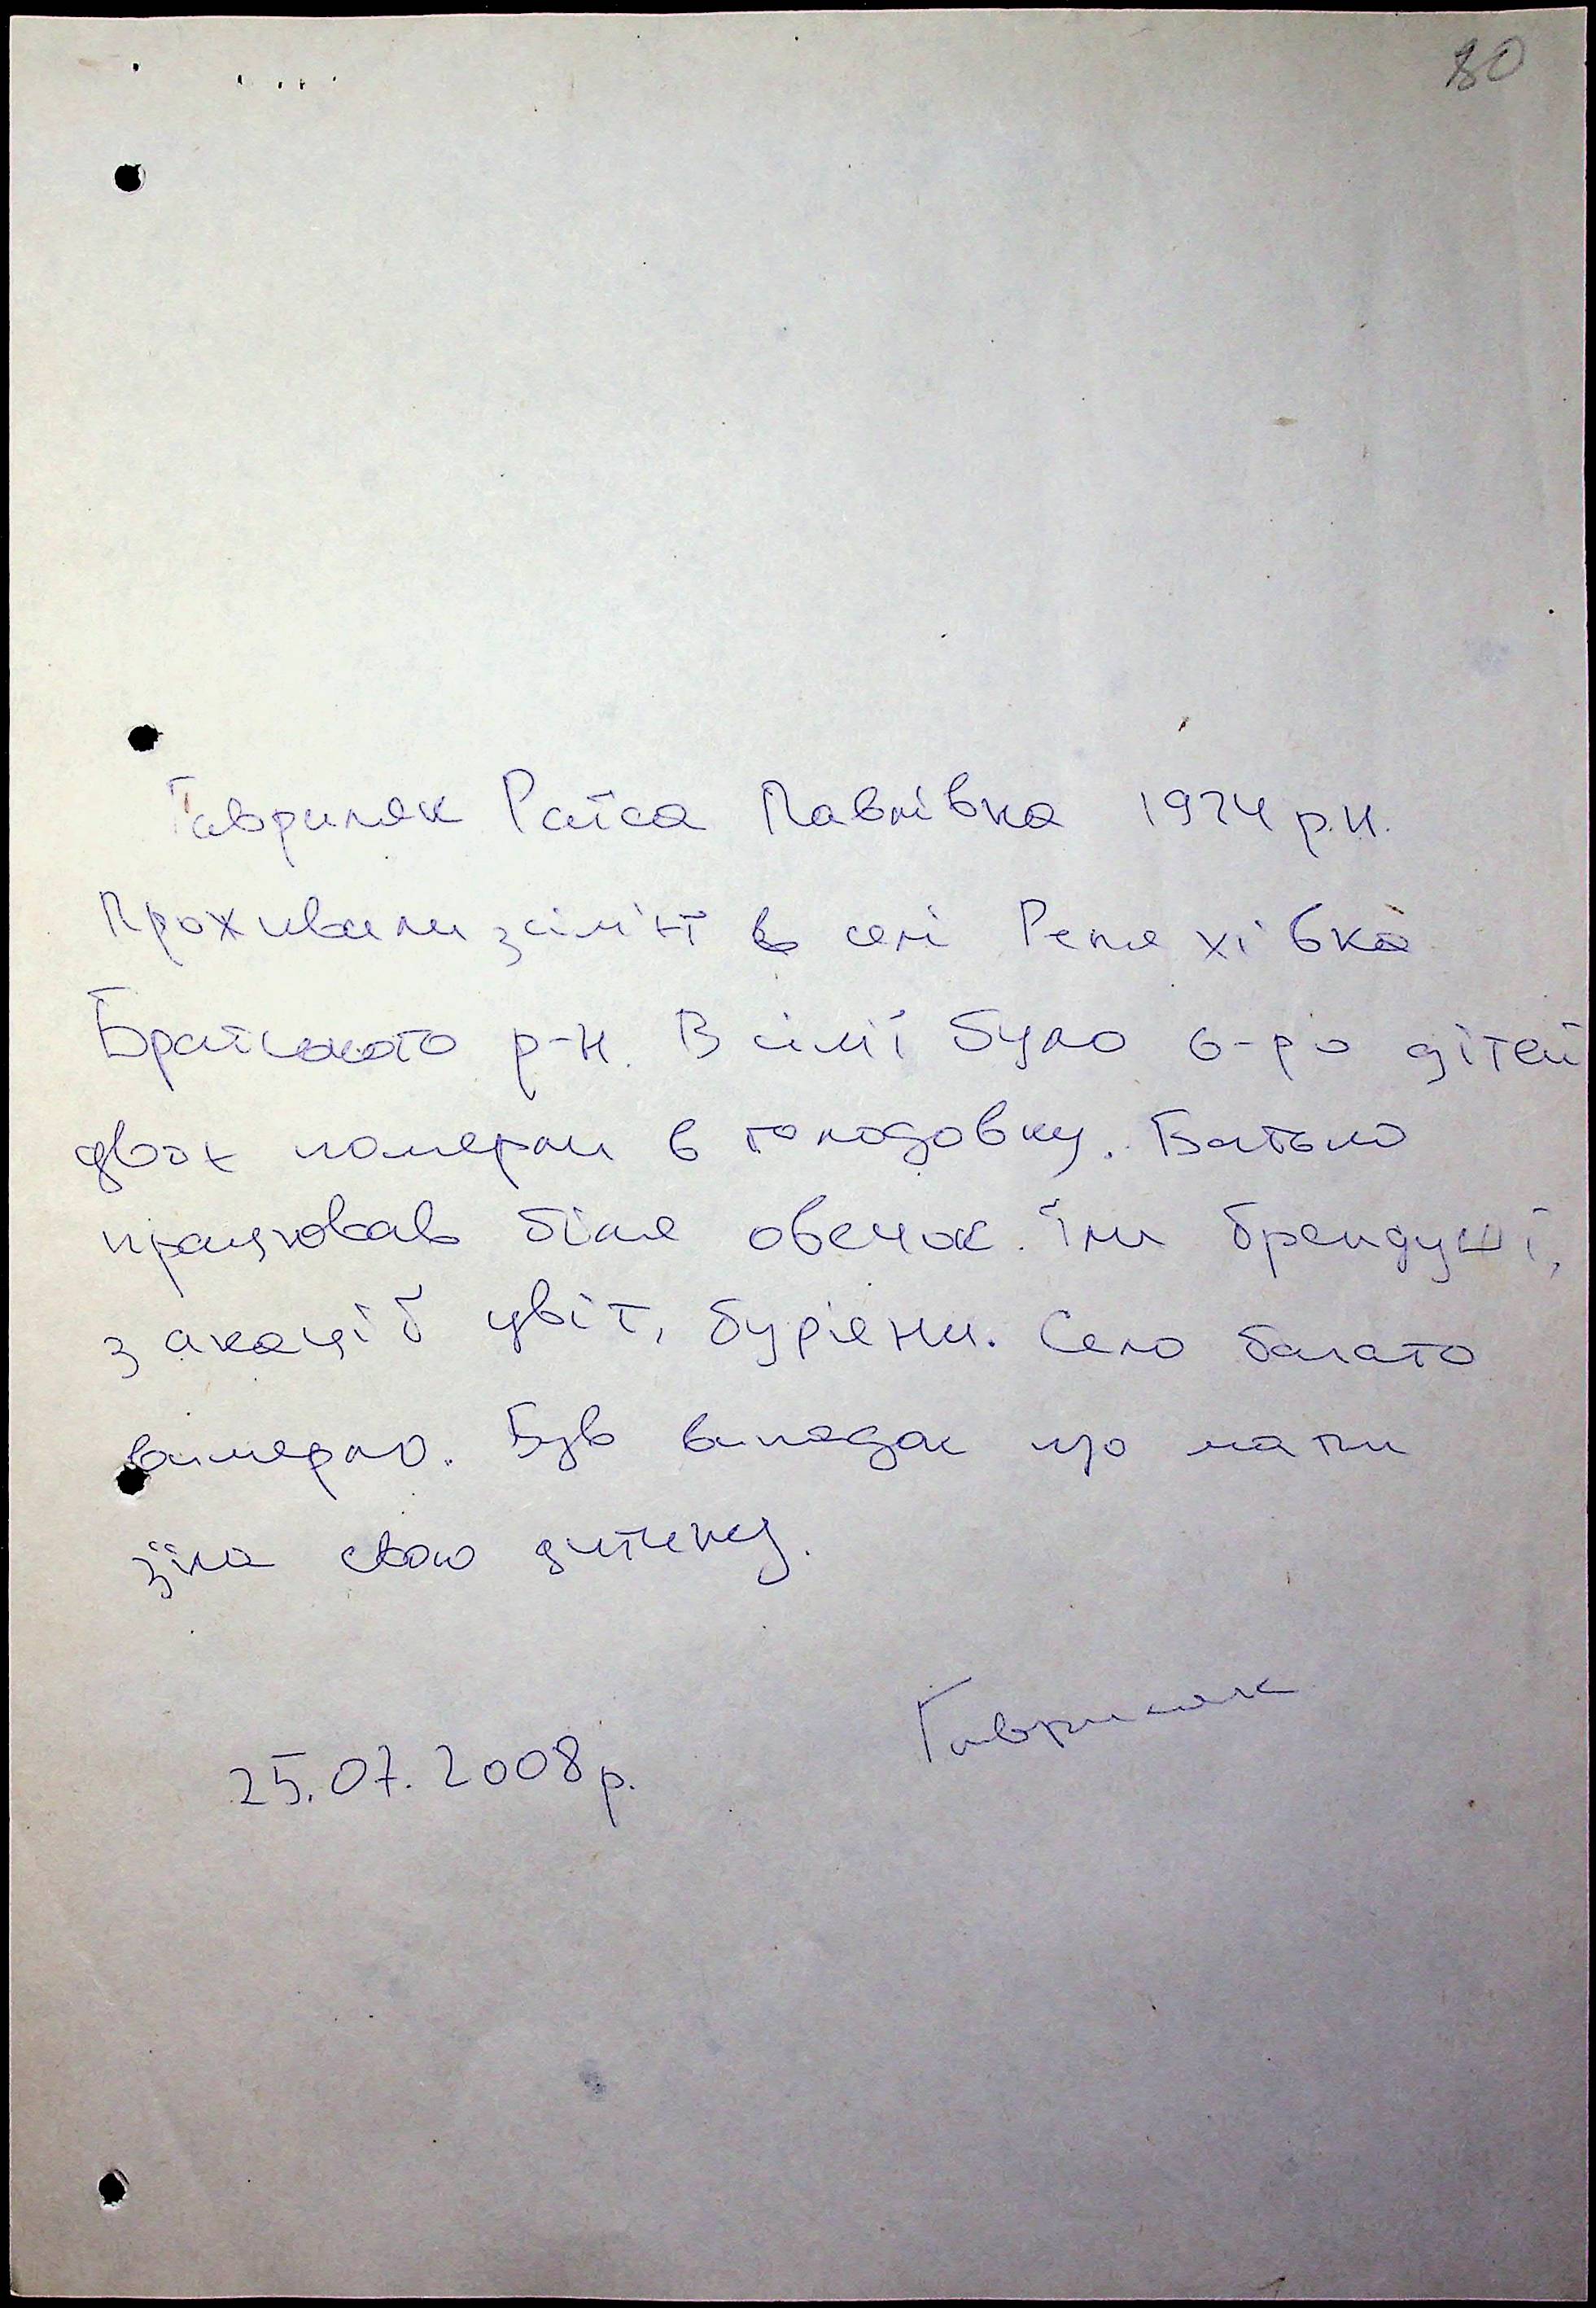 80
Гавриляк Раїса Павлівна 1924 р.н.
Проживали з сім'єї в селі Репяхівка
Братського р-н. В сімї було 6-ро дітей
двоє померли в голодовку. Батько
працював біля овечок. Їли брендуші,
з акації цвіт, буряни. Село багато
вимерло. Був випадок що мати
зїла свою дитину.
Гавриляк
25.07.2008р.